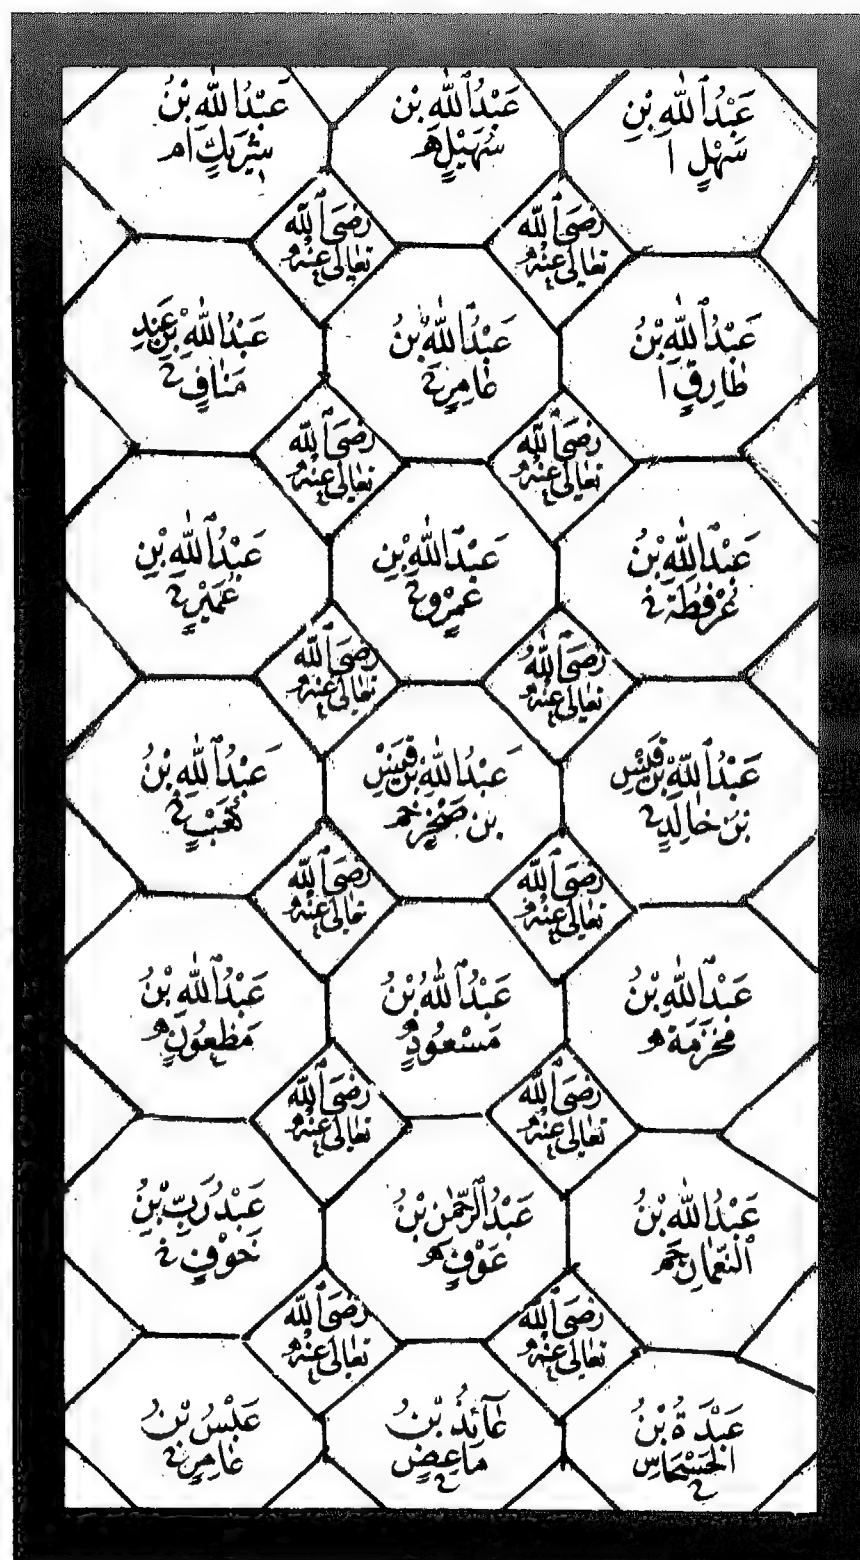 عَبْدُاللّٰهِ بْنِ
سَهْلٍ ا
عَبْدُاللّٰهِ بْن
سُهَيْلٍ هـ
عَبْدُاللّٰهِ بْنُ
شَرِيكٍ ام
رَضِيَ اللّٰه
تَعَالٰى عَنْهُ
رَضِيَ اللّٰه
تَعَالٰى عَنْهُ
عَبْدُاللّٰهِ بْنُ
طَارِقٍ ا
عَبْدُاللّٰهِ بْنُ
عَامِرٍ
عَبْدُاللّٰهِ بْنِ عَبْدِ
مَنَافٍ
رَضِيَ اللّٰه
تَعَالٰى عَنْهُ
رَضِيَ اللّٰه
تَعَالٰى عَنْهُ
عَبْدُاللّٰهِ بْنُ
عُرْفُطَةَ خ
عَبْدُاللّٰهِ بْنِ
عَمْرٍو
عَبْدُاللّٰهِ بْنِ
عُمَيْرٍ
رَضِيَ اللّٰه
تَعَالٰى عَنْهُ
رَضِيَ اللّٰه
تَعَالٰى عَنْهُ
عَبْدُاللّٰهِ بْنِ قَيْسِ
بْن خَالِدٍ
عَبْدُاللّٰهِ بْنِ قَيْسِ
بْن صَخْرٍ
عَبْدُاللّٰهِ بْنُ
كَعْبٍ
رَضِيَ اللّٰه
تَعَالٰى عَنْهُ
رَضِيَ اللّٰه
تَعَالٰى عَنْهُ
عَبْدُاللّٰهِ بْنُ
مَخْرَمَةَ هـ
عَبْدُاللّٰهِ بْنُ
مَسْعُودٍ هـ
عَبْدُاللّٰهِ بْنُ
مَظْعُونٍ هـ
رَضِيَ اللّٰه
تَعَالٰى عَنْهُ
رَضِيَ اللّٰه
تَعَالٰى عَنْهُ
عَبْدُاللّٰهِ بْنُ
النُّعْمَانِ
عَبْدُالرَّحْمٰنِ بْنُ
عَوْفٍ
عَبْدُ رَبِّ بْنِ
حَوْفٍ خ
رَضِيَ اللّٰه
تَعَالٰى عَنْهُ
رَضِيَ اللّٰه
تَعَالٰى عَنْهُ
عَبْدَةُ بْنُ
الْحَسْحَاسِ
عَآئِذُ بْنُ
مَاعِضٍ
عَبْسُ بْنُ
عَامِرٍ